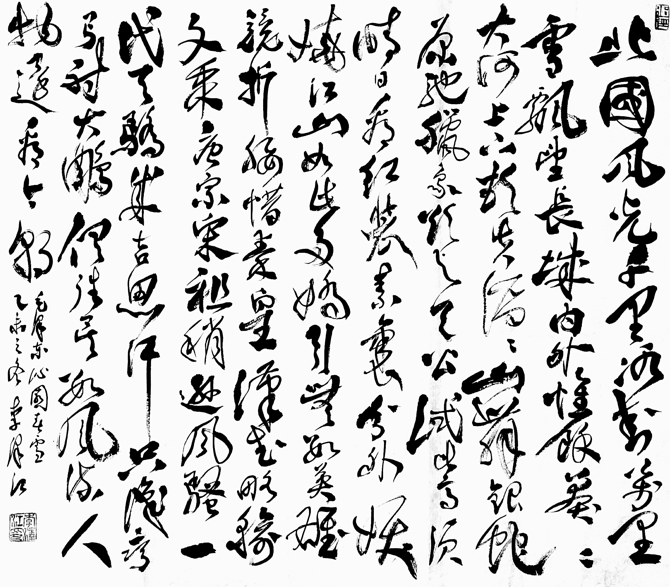 北國風光千里冰封萬里
雪飄望長城內外惟餘莽々
大河上下頓失滔々山舞銀蛇
原馳臘象欲与天公試比高須
晴日看紅裝素裹分外妖
嬈江山如此多嬌引無數英雄
競折腰惜秦皇漢武略輸
文采唐宗宋祖稍遜風騷一
代天驕成吉思汗只識彎
弓射大鵰俱往矣數風流人
物還看今朝
毛澤東沁園春雪
乙亥之冬